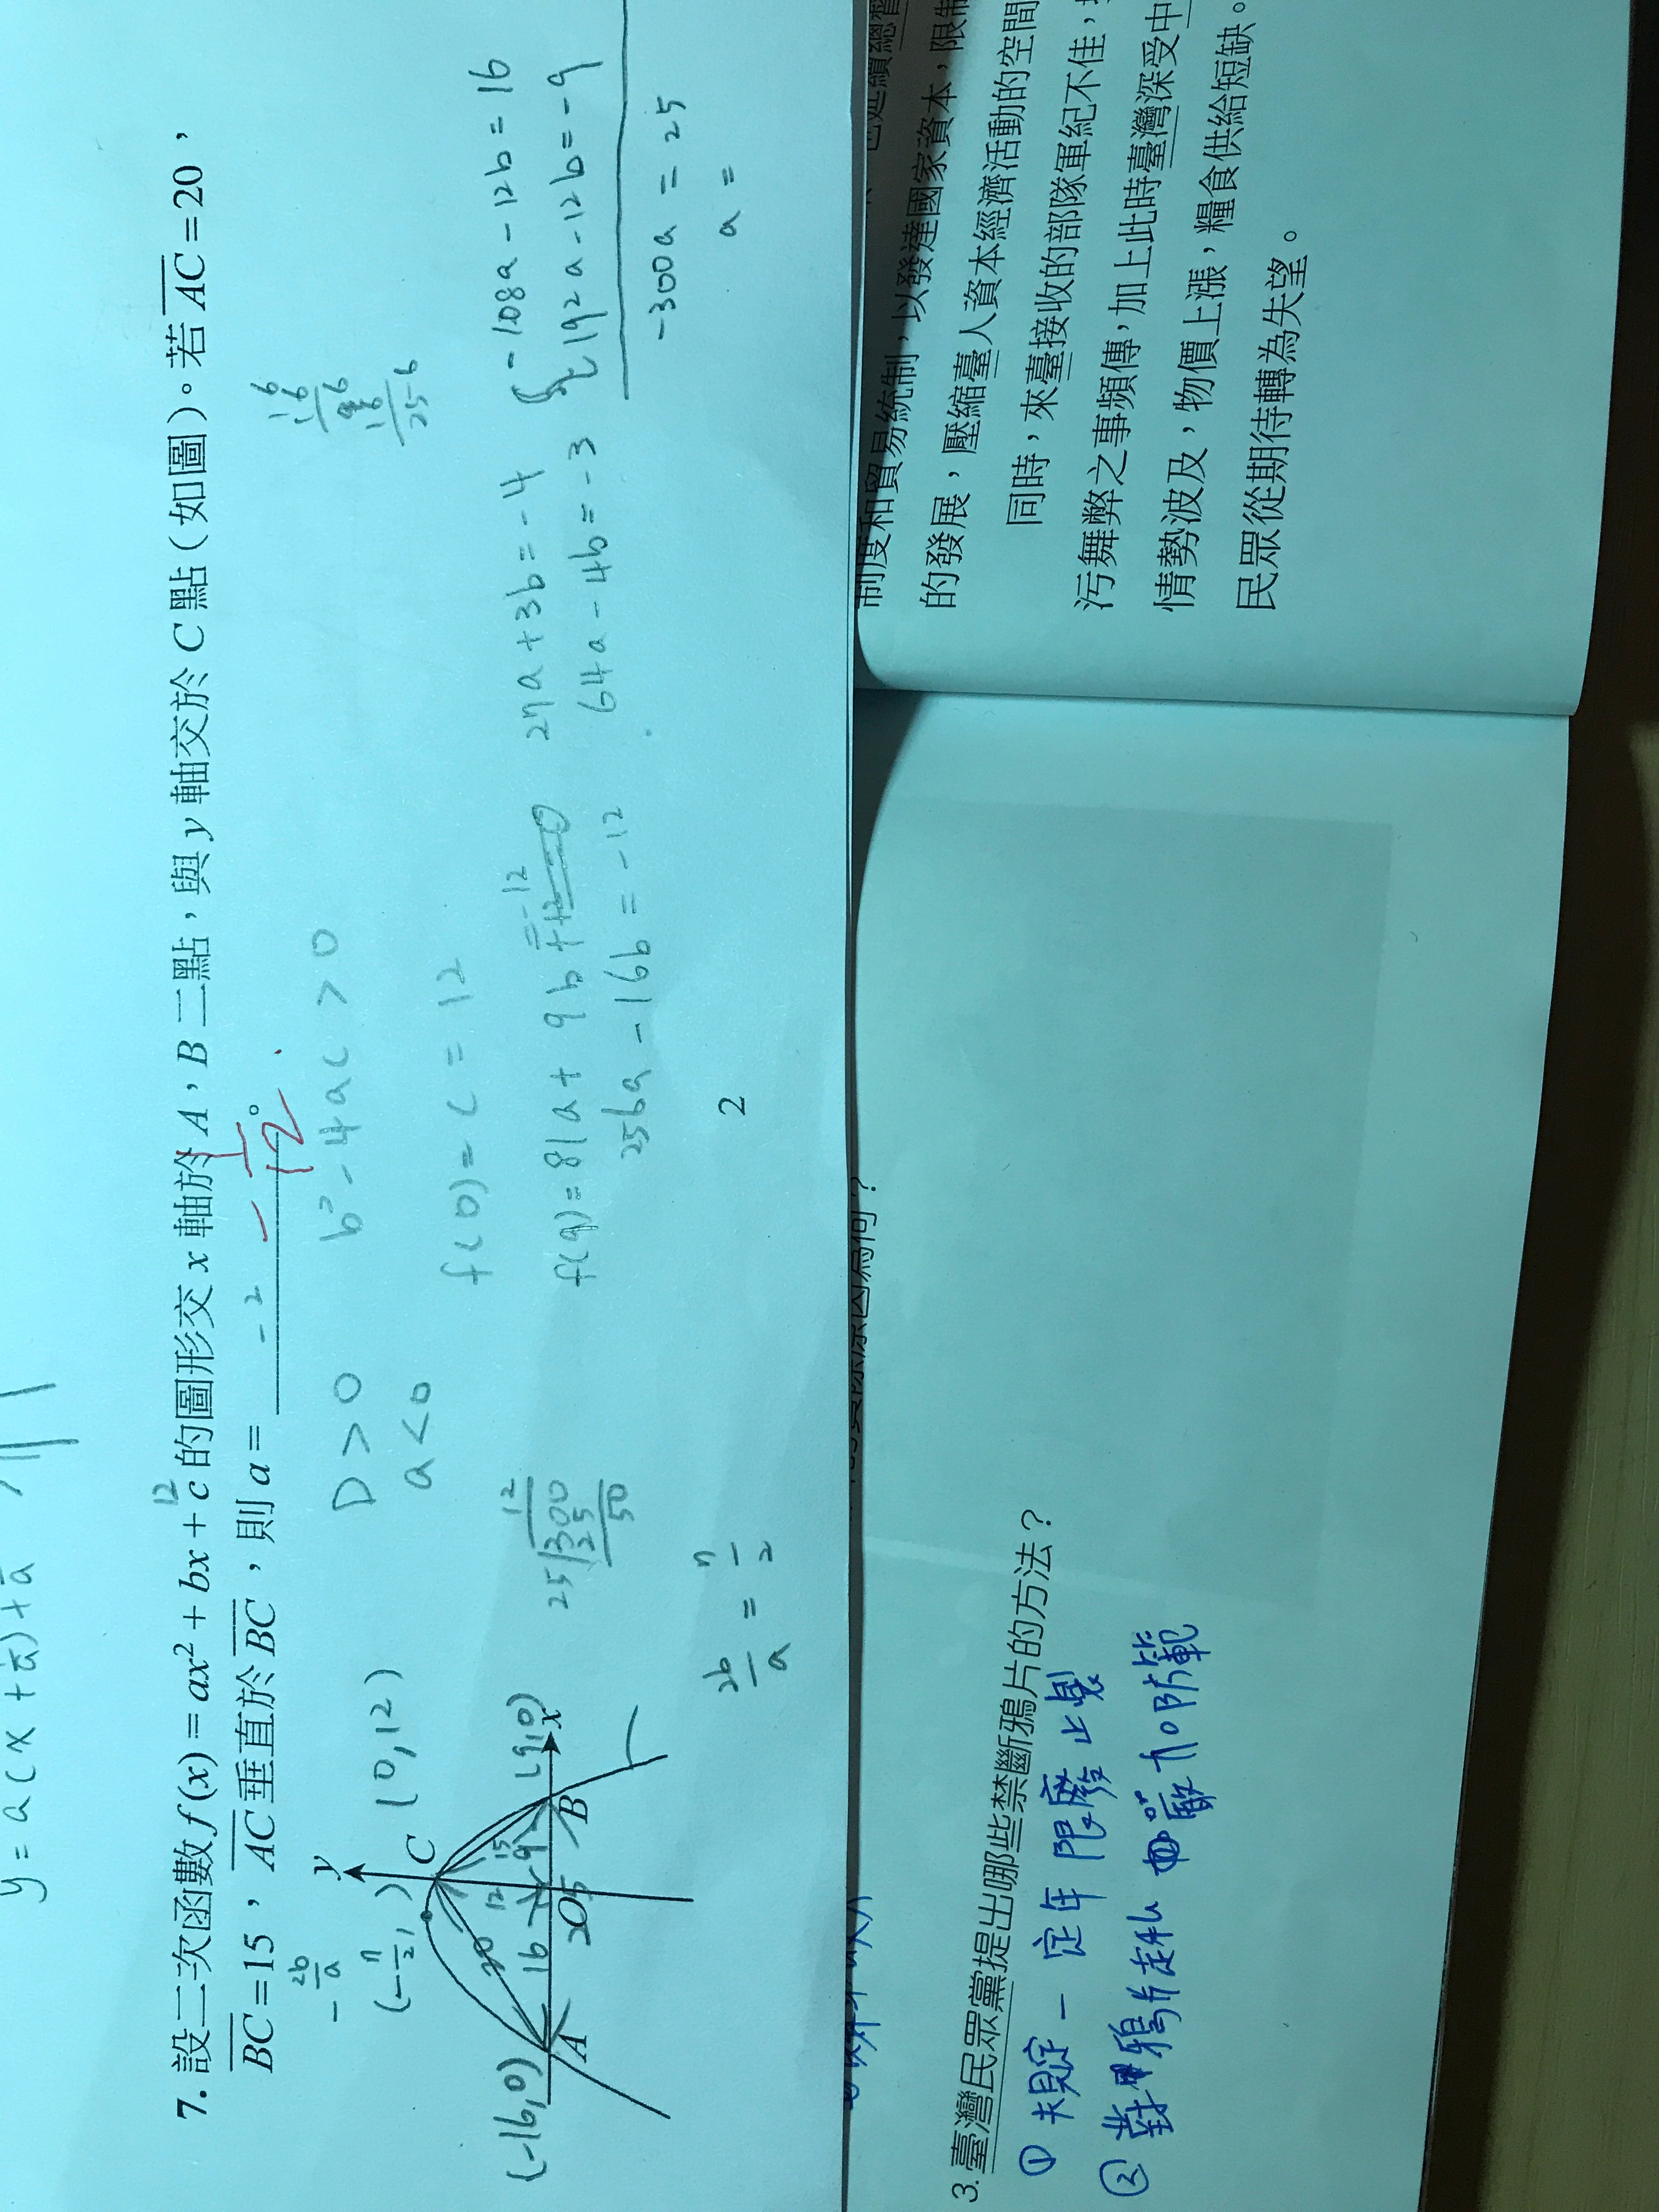 y = a(x +
7. 設二次函數 f(x) = ax² + bx + c 的圖形交 x 軸於 A,B 二點,與 y 軸交於 C 點(如圖)。若 AC = 20,
12
BC = 15,AC 垂直於 BC,則 a = 。
-2
- 1/12
- 2b/a
D > 0
b² - 4ac > 0
a < 0
(0, 12)
f(0) = c = 12
y
C
(-16, 0)
A
20
16
12
15
9
O
25
B
(9, 0)
x
12
25 300
25
50
f(9) = 81a + 9b = -12
256a - 16b = -12
27a + 3b = -4
64a - 4b = -3
-108a - 12b = 16
192a - 12b = -9
-300a = 25
a =
2b/a =
16
25
2
3. 臺灣民眾黨提出哪些禁斷鴉片的方法?
① 規定一定年限廢止製
② 對鴉片走私嚴加防範
制度和貿易統制,以發達國家資本,限制
的發展,壓縮臺人資本經濟活動的空間
同時,來臺接收的部隊軍紀不佳,
污舞弊之事頻傳,加上此時臺灣深受中
情勢波及,物價上漲,糧食供給短缺。
民眾從期待轉為失望。